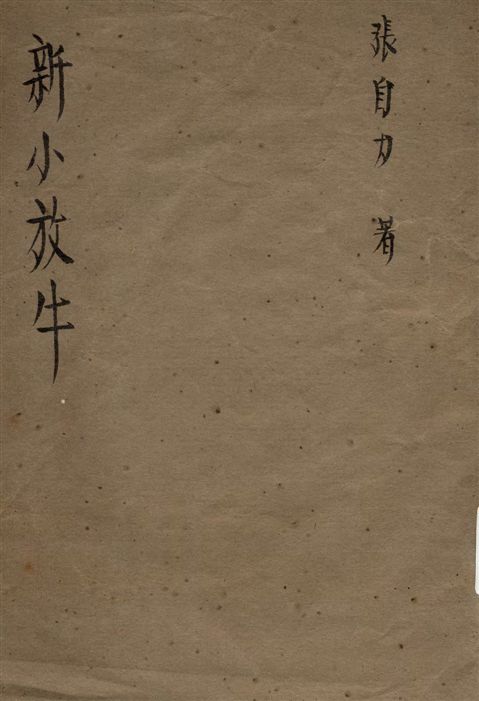 張自力 著
新小放牛